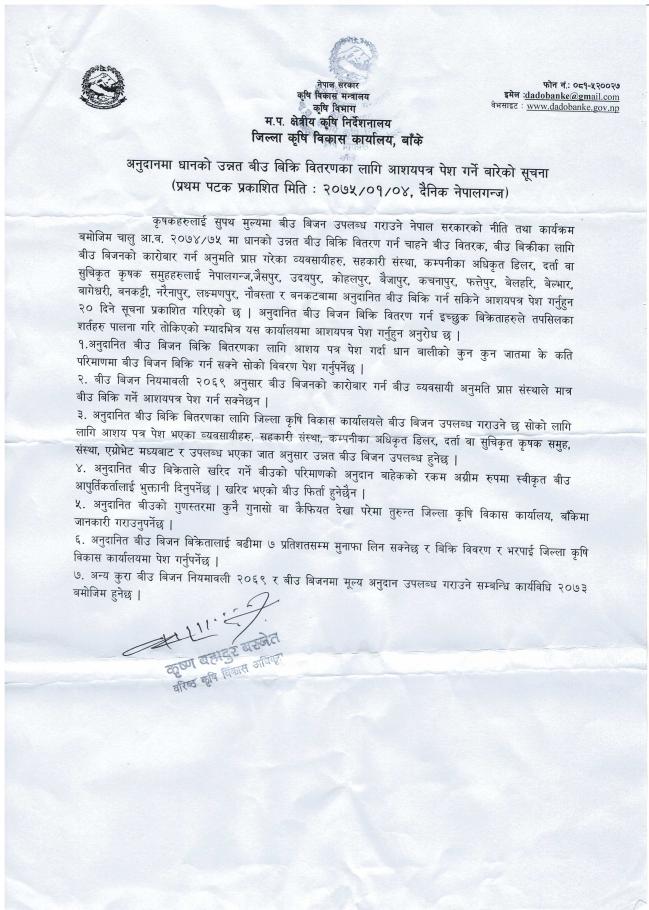 नेपाल सरकार
कृषि विकास मन्त्रालय
कृषि विभाग
म.प. क्षेत्रीय कृषि निर्देशनालय
जिल्ला कृषि विकास कार्यालय, बाँके
फोन नं.: ०८१-५२००२७
इमेल :dadobanke@gmail.com
वेभसाइट : www.dadobanke.gov.np
अनुदानमा धानको उन्नत बीउ बिक्रि वितरणका लागि आशयपत्र पेश गर्ने बारेको सूचना
(प्रथम पटक प्रकाशित मिति : २०७५/०१/०४, दैनिक नेपालगन्ज)
कृषकहरुलाई सुपथ मुल्यमा बीउ बिजन उपलब्ध गराउने नेपाल सरकारको नीति तथा कार्यक्रम
बमोजिम चालु आ.व. २०७४/७५ मा धानको उन्नत बीउ बिक्रि वितरण गर्न चाहने बीउ वितरक, बीउ बिक्रीका लागि
बीउ बिजनको कारोबार गर्न अनुमति प्राप्त गरेका व्यवसायीहरु, सहकारी संस्था, कम्पनीका अधिकृत डिलर, दर्ता वा
सुचिकृत कृषक समुहहरुलाई नेपालगन्ज,जैसपुर, उदयपुर, कोहलपुर, बैजापुर, कचनापुर, फत्तेपुर, बेलहरि, बेल्भार,
बागेश्वरी, बनकट्टी, नरैनापुर, लक्ष्मणपुर, नौवस्ता र बनकटवामा अनुदानित बीउ बिक्रि गर्न सकिने आशयपत्र पेश गर्नुहुन
२० दिने सूचना प्रकाशित गरिएको छ | अनुदानित बीउ बिजन बिक्रि वितरण गर्न इच्छुक बिक्रेताहरुले तपसिलका
शर्तहरु पालना गरि तोकिएको म्यादभित्र यस कार्यालयमा आशयपत्र पेश गर्नुहुन अनुरोध छ |
१.अनुदानित बीउ बिजन बिक्रि बितरणका लागि आशय पत्र पेश गर्दा धान बालीको कुन कुन जातमा के कति
परिमाणमा बीउ बिजन बिक्रि गर्न सक्ने सोको विवरण पेश गर्नुपर्नेछ |
२. बीउ बिजन नियमावली २०६९ अनुसार बीउ बिजनको कारोबार गर्न बीउ व्यवसायी अनुमति प्राप्त संस्थाले मात्र
बीउ बिक्रि गर्ने आशयपत्र पेश गर्न सक्नेछन |
३. अनुदानित बीउ बिक्रि बितरणका लागि जिल्ला कृषि विकास कार्यालयले बीउ बिजन उपलब्ध गराउने छ सोको लागि
लागि आशय पत्र पेश भएका व्यवसायीहरु, सहकारी संस्था, कम्पनीका अधिकृत डिलर, दर्ता वा सुचिकृत कृषक समुह,
संस्था, एग्रोभेट मध्यबाट र उपलब्ध भएका जात अनुसार उन्नत बीउ बिजन उपलब्ध हुनेछ |
४. अनुदानित बीउ बिक्रेताले खरिद गर्ने बीउको परिमाणको अनुदान बाहेकको रकम अग्रीम रुपमा स्वीकृत बीउ
आपुर्तिकर्तालाई भुक्तानी दिनुपर्नेछ | खरिद भएको बीउ फिर्ता हुनेछैन |
५. अनुदानित बीउको गुणस्तरमा कुनै गुनासो वा कैफियत देखा परेमा तुरुन्त जिल्ला कृषि विकास कार्यालय, बाँकेमा
जानकारी गराउनुपर्नेछ |
६. अनुदानित बीउ बिजन बिक्रेतालाई बढीमा ७ प्रतिशतसम्म मुनाफा लिन सक्नेछ र बिक्रि विवरण र भरपाई जिल्ला कृषि
विकास कार्यालयमा पेश गर्नुपर्नेछ |
७. अन्य कुरा बीउ बिजन नियमावली २०६९ र बीउ बिजनमा मूल्य अनुदान उपलब्ध गराउने सम्बन्धि कार्यविधि २०७३
बमोजिम हुनेछ |
कृष्ण बहादुर बस्नेत
वरिष्ठ कृषि विकास अधिकृत